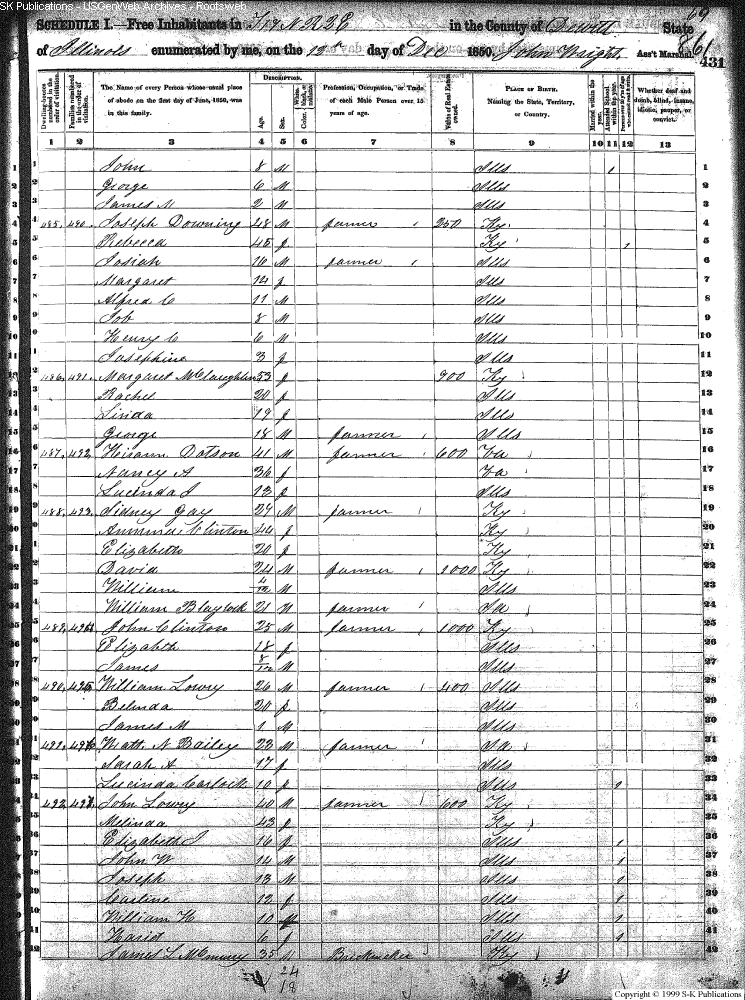 SK Publications - USGenWeb Archives - Rootsweb
SCHEDULE I.—Free Inhabitants in T 19 N R 2 E in the County of Dewitt State
of Illinois enumerated by me, on the 13th day of Dec 1850. John Wright, Ass't Marshal.
431
Dwelling-houses numbered in the order of visitation.
Families numbered in the order of visitation.
The Name of every Person whose usual place of abode on the first day of June, 1850, was in this family.
Description.
Age.
Sex.
Color, White, black, or mulatto.
Profession, Occupation, or Trade of each Male Person over 15 years of age.
Value of Real Estate owned.
Place of Birth. Naming the State, Territory, or Country.
Married within the year.
Attended School within the year.
Whether deaf and dumb, blind, insane, idiotic, pauper, or convict.
1 2 3 4 5 6 7 8 9 10 11 12 13
1 John 8 M Ills 1 1
2 George 6 M Ills 2
3 James M 2 M Ills 3
4 485. 490. Joseph Downing 48 M farmer 250 Ky 4
5 Rebecca 45 f Ky 1 5
6 Josiah 16 M farmer Ills 6
7 Margaret 14 f Ills 7
8 Alfred C 11 M Ills 8
9 Job 8 M Ills 9
10 Henry C 6 M Ills 10
11 Josephine 3 f Ills 11
12 486. 491. Margaret McLaughlin 53 f 900 Ky 12
13 Rachel 20 f Ills 13
14 Linda 19 f Ills 14
15 George 18 M farmer Ills 15
16 487. 492. Hiram Dotson 41 M farmer 600 Va 16
17 Nancy A 36 f Va 17
18 Lucinda J 13 f Ills 18
19 488. 493. Sidney Gay 29 M farmer Ky 19
20 Clinton 44 f Ky 20
21 Elizabeth 20 f Ky 21
22 David 24 M farmer 1000 Ky 22
23 William 4/12 M Ills 23
24 William Blaylock 21 M farmer 24
25 489. 494. John Clinton 25 M farmer 1000 Ky 25
26 Elizabeth 18 f Ills 26
27 James 8/12 M Ills 27
28 490. 495. William Lowry 26 M farmer 400 Ills 28
29 Belinda 20 f Ills 29
30 James M 1 M Ills 30
31 491. 496. Matt. N Bailey 23 M farmer 31
32 Sarah A 17 f Ills 32
33 Lucinda Carlock 10 f Ills 1 33
34 492. 497. John Lowry 40 M farmer 600 Ky 34
35 Melinda 43 f Ky 35
36 Elizabeth J 16 f Ills 1 36
37 John W 14 M Ills 1 37
38 Joseph 13 M Ills 1 38
39 Carline 12 f Ills 1 39
40 William H 10 Ills 1 40
41 Hariet 6 f Ills 1 41
42 James L McEmury 35 M Brickmaker Ky 42
24
18
Copyright © 1999 S-K Publications